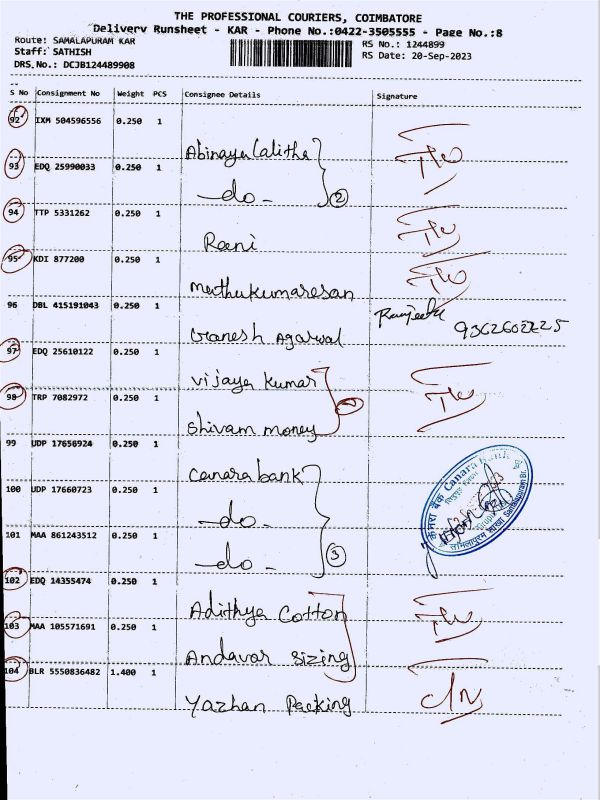 THE PROFESSIONAL COURIERS, COIMBATORE
Delivery Runsheet - KAR - Phone No.:0422-3505555 - Page No.:8
Route: SAMALAPURAM KAR
RS No.: 1244899
Staff: SATHISH
RS Date: 20-Sep-2023
DRS.No.: DCJB124489908
S No Consignment No Weight PCS Consignee Details Signature
92 IXM 504596556 0.250 1
Abinaya Lalitha
93 EDQ 25990033 0.250 1
-do- 2
94 TTP 5331262 0.250 1
Rani
95 KDI 877200 0.250 1
muthukumaresan
96 DBL 415191043 0.250 1
Ganesh Agarwal
97 EDQ 25610122 0.250 1
vijaya kumar
98 TRP 7082972 0.250 1
shivam money
99 UDP 17656924 0.250 1
Canara bank
100 UDP 17660723 0.250 1
-do-
101 MAA 861243512 0.250 1
-do- 3
Canara Bank
102 EDQ 14355474 0.250 1
Adithya Cotton
103 MAA 105571691 0.250 1
Andavar sizing
104 BLR 5550836482 1.400 1
Yazhan Packing